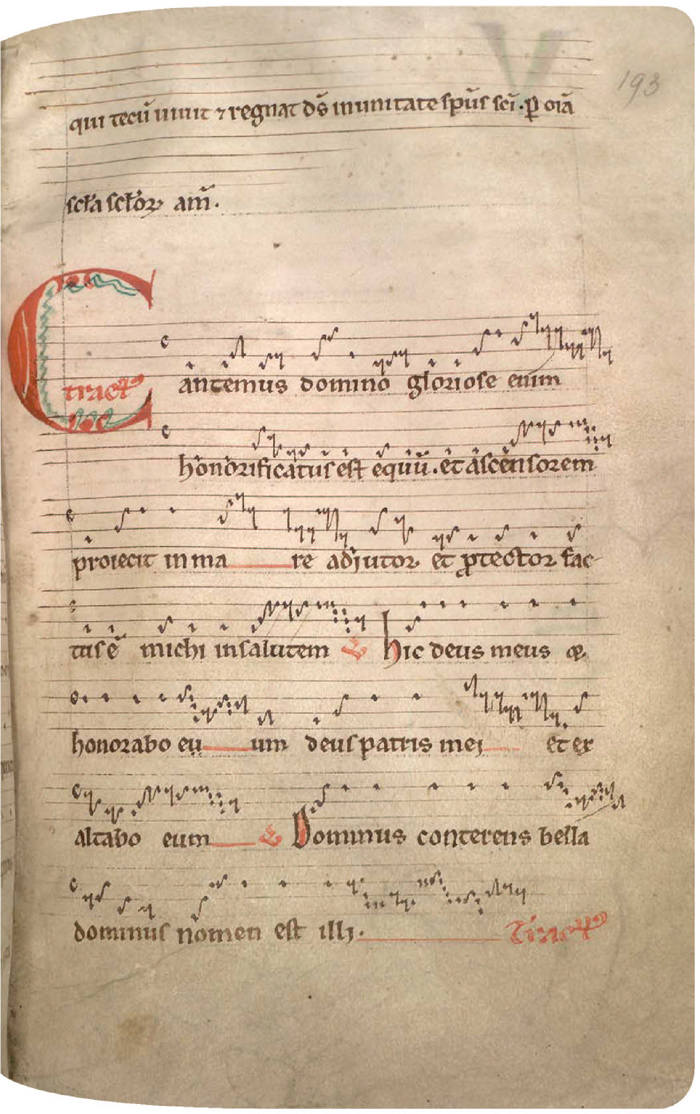 193
qui tecū uiuit ⁊ regnat dn̄s in unitate sp̄us sc̄i · ꝑ oīa
scl̄a scl̄oꝝ am̄ .
tractꝰ
Cantemus domino gloriose enim
honorificatus est equū . et ascensorem
proiecit in ma re adiutor et ꝓtector fac-
tus ē michi in salutem
hic deus meus ⁊
honorabo eu um deus patris mei et ex
altabo eum Dominus conterens bella
dominus nomen est illi . Tractꝰ